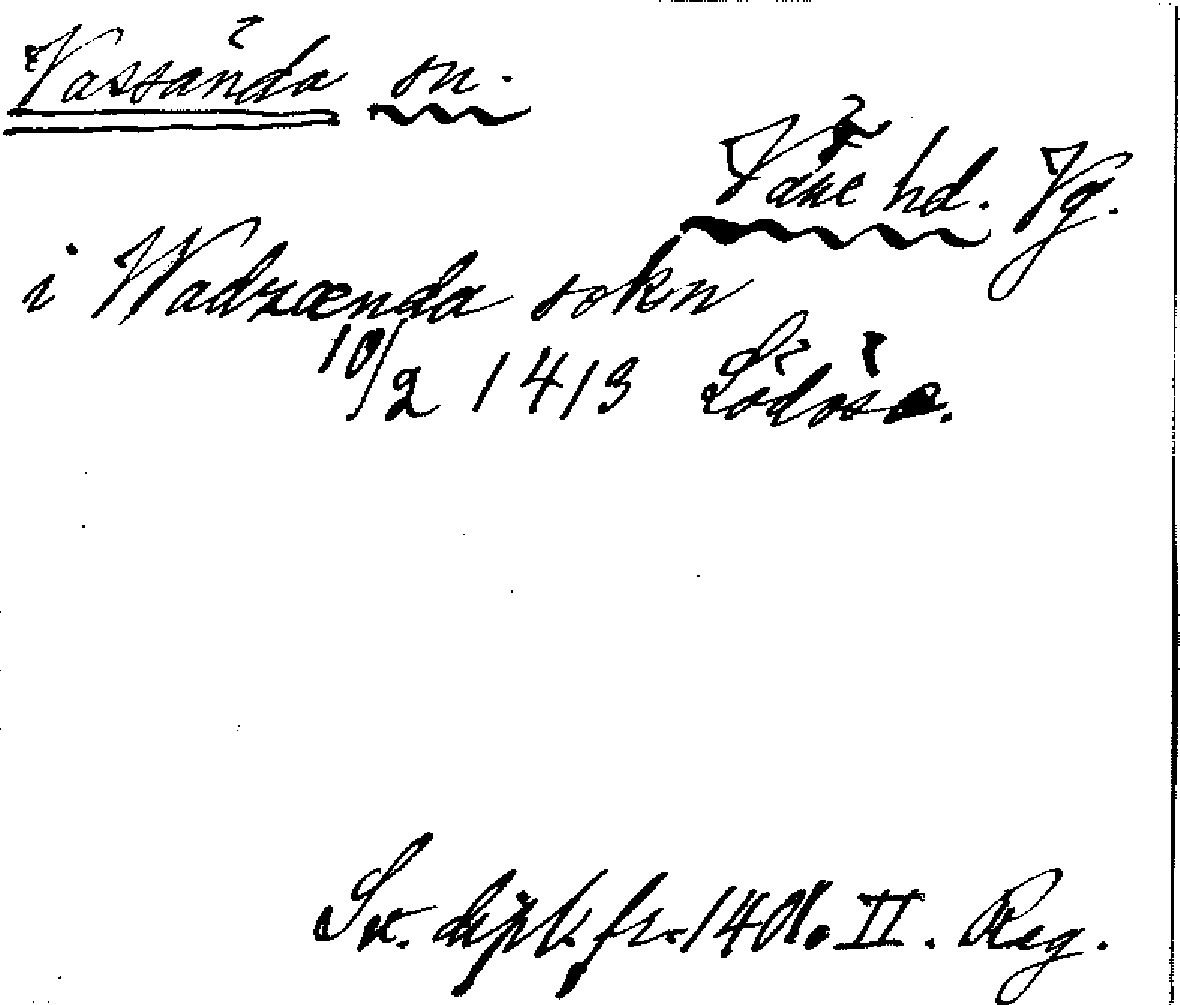 Vassända sn.
Väne hd. Vg.
i Wadzænda sokn
10/2 1413 Lödöse.
Sv. dipl. fr. 1401. II. Reg.